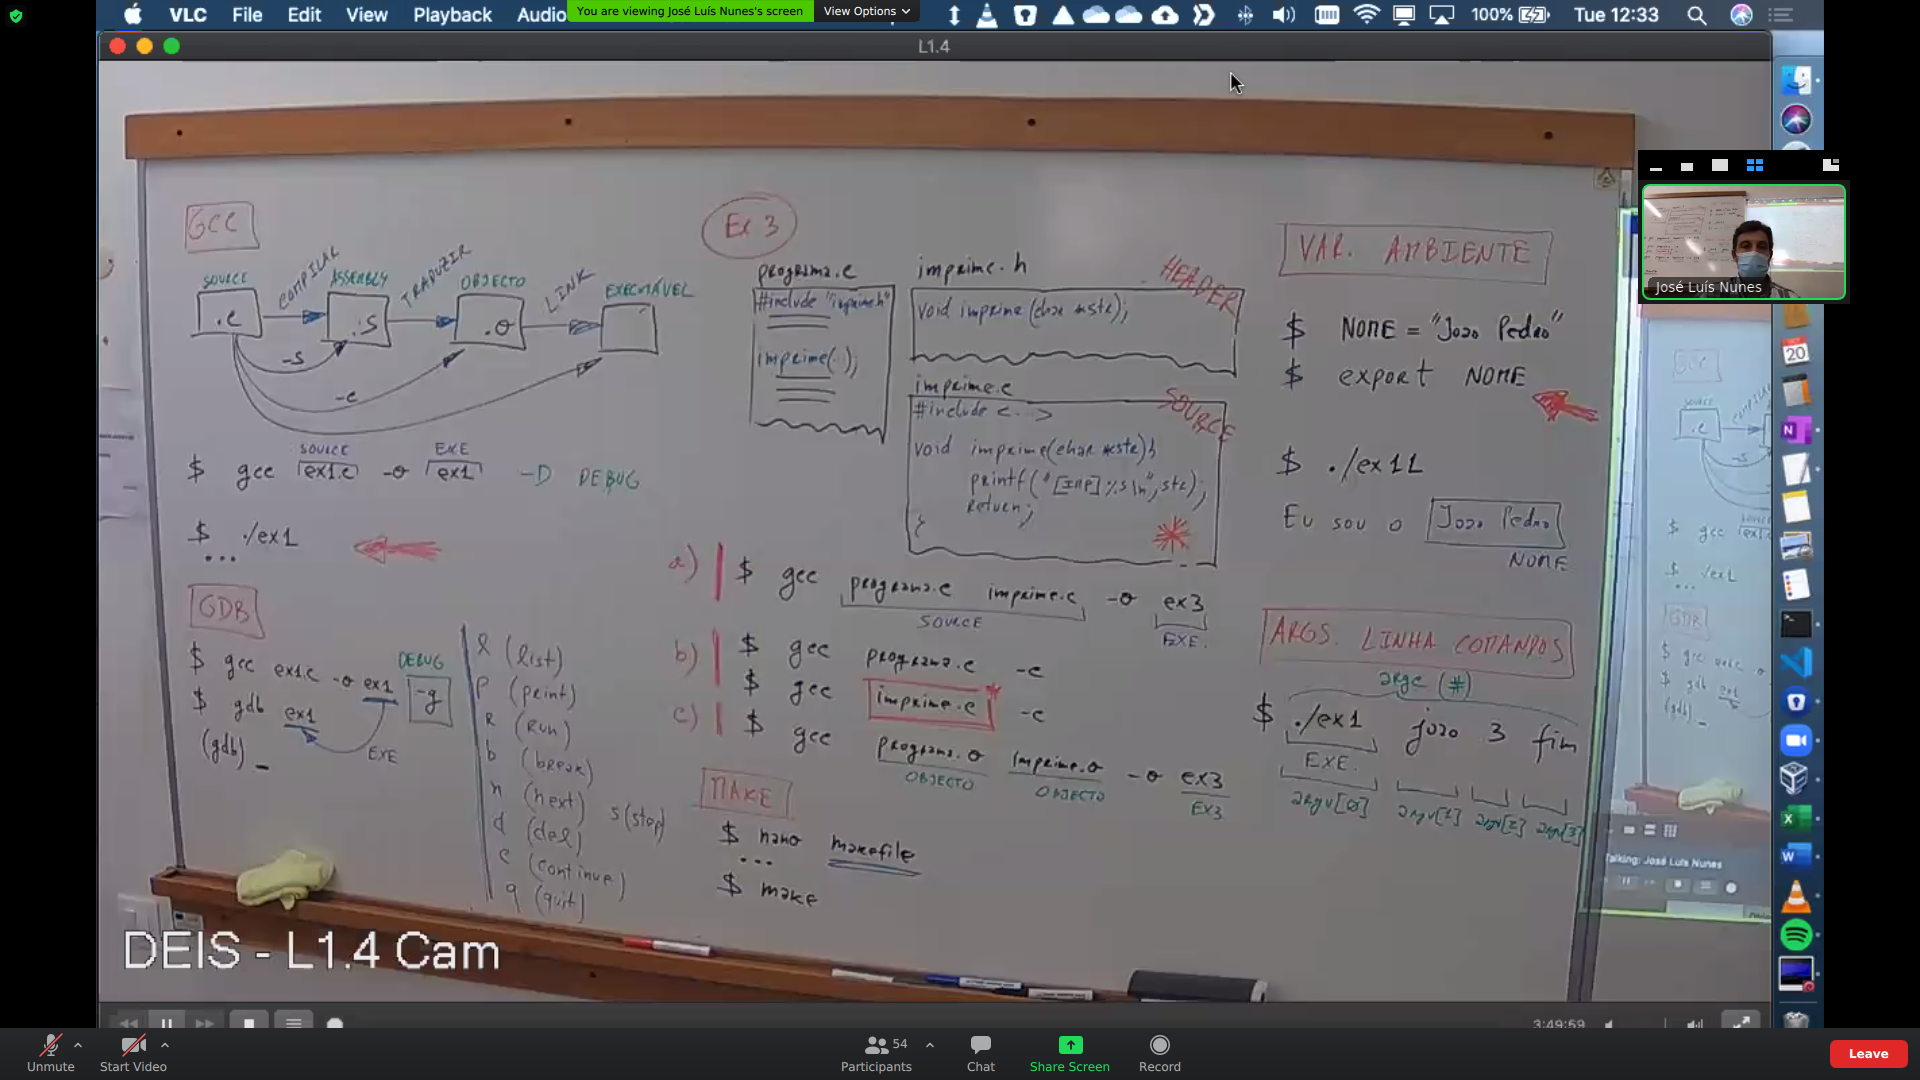 VLC File Edit View Playback Audio
You are viewing José Luís Nunes's screen
View Options
100%
Tue 12:33
L1.4
José Luís Nunes
GCC
SOURCE
COMPILAR
ASSEMBLY
TRADUZIR
OBJECTO
LINK
EXECUTÁVEL
.c
.s
.o
-S
-c
SOURCE EXE
$ gcc ex1.c -o ex1 -D DEBUG
$ ./ex1
...
GDB
DEBUG
$ gcc ex1.c -o ex1 -g
$ gdb ex1
EXE
(gdb) _
l (list)
p (print)
R (Run)
b (break)
n (next) s (step)
d (del)
c (continue)
q (quit)
Ex 3
programa.c
#include "imprime.h"
imprime(..);
imprime.h
HEADER
void imprime (char *str);
imprime.c
SOURCE
#include <...>
void imprime(char *str){
printf("[IMP] %s \n", str);
return;
}
a) $ gcc programa.c imprime.c -o ex3
SOURCE EXE.
b) $ gcc programa.c -c
$ gcc imprime.c -c
c) $ gcc programa.o imprime.o -o ex3
OBJECTO OBJECTO EX3
MAKE
$ nano makefile
...
$ make
VAR. AMBIENTE
$ NOME = "Joao Pedro"
$ export NOME
$ ./ex11
Eu sou o Joao Pedro
NOME
ARGS. LINHA COMANDOS
argc (#)
$ ./ex1 joao 3 fim
EXE.
argv[0] argv[1] argv[2] argv[3]
DEIS - L1.4 Cam
Talking: José Luís Nunes
20
3:49:59
Unmute
Start Video
Participants
54
Chat
Share Screen
Record
Leave